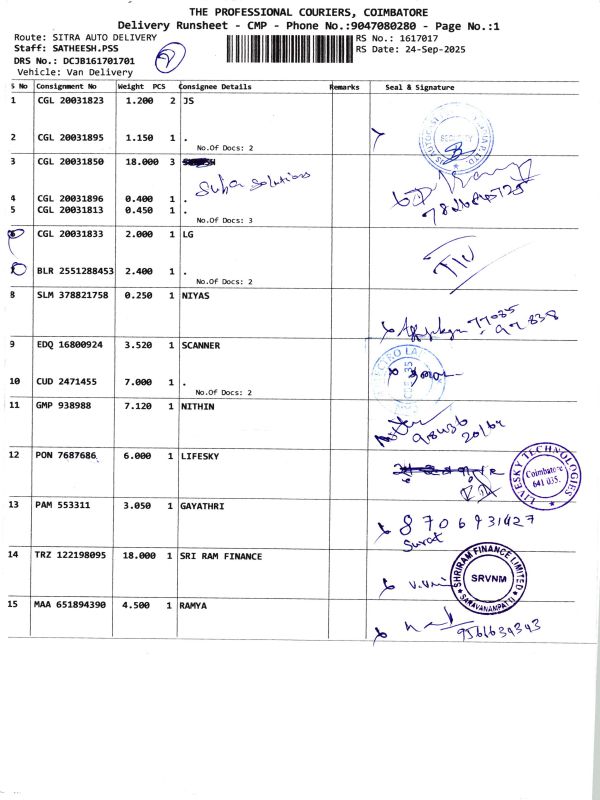 THE PROFESSIONAL COURIERS, COIMBATORE
Delivery Runsheet - CMP - Phone No.:9047080280 - Page No.:1
Route: SITRA AUTO DELIVERY
RS No.: 1617017
Staff: SATHEESH.PSS
RS Date: 24-Sep-2025
DRS No.: DCJB161701701
Vehicle: Van Delivery
S No Consignment No Weight PCS Consignee Details Remarks Seal & Signature
1 CGL 20031823 1.200 2 JS
2 CGL 20031895 1.150 1 .
No.Of Docs: 2
3 CGL 20031850 18.000 3
Supra Solutions
4 CGL 20031896 0.400 1 .
5 CGL 20031813 0.450 1 .
No.Of Docs: 3
CGL 20031833 2.000 1 LG
BLR 2551288453 2.400 1 .
No.Of Docs: 2
TIU
8 SLM 378821758 0.250 1 NIYAS
9 EDQ 16800924 3.520 1 SCANNER
10 CUD 2471455 7.000 1 .
No.Of Docs: 2
11 GMP 938988 7.120 1 NITHIN
12 PON 7687686 6.000 1 LIFESKY
LIVESKY TECHNOLOGIES
Coimbatore
641 035.
13 PAM 553311 3.050 1 GAYATHRI
8706931427
Surat
14 TRZ 122198095 18.000 1 SRI RAM FINANCE
SHRIRAM FINANCE LIMITED
SRVNM
SARAVANAMPATTI
15 MAA 651894390 4.500 1 RAMYA
9566634343